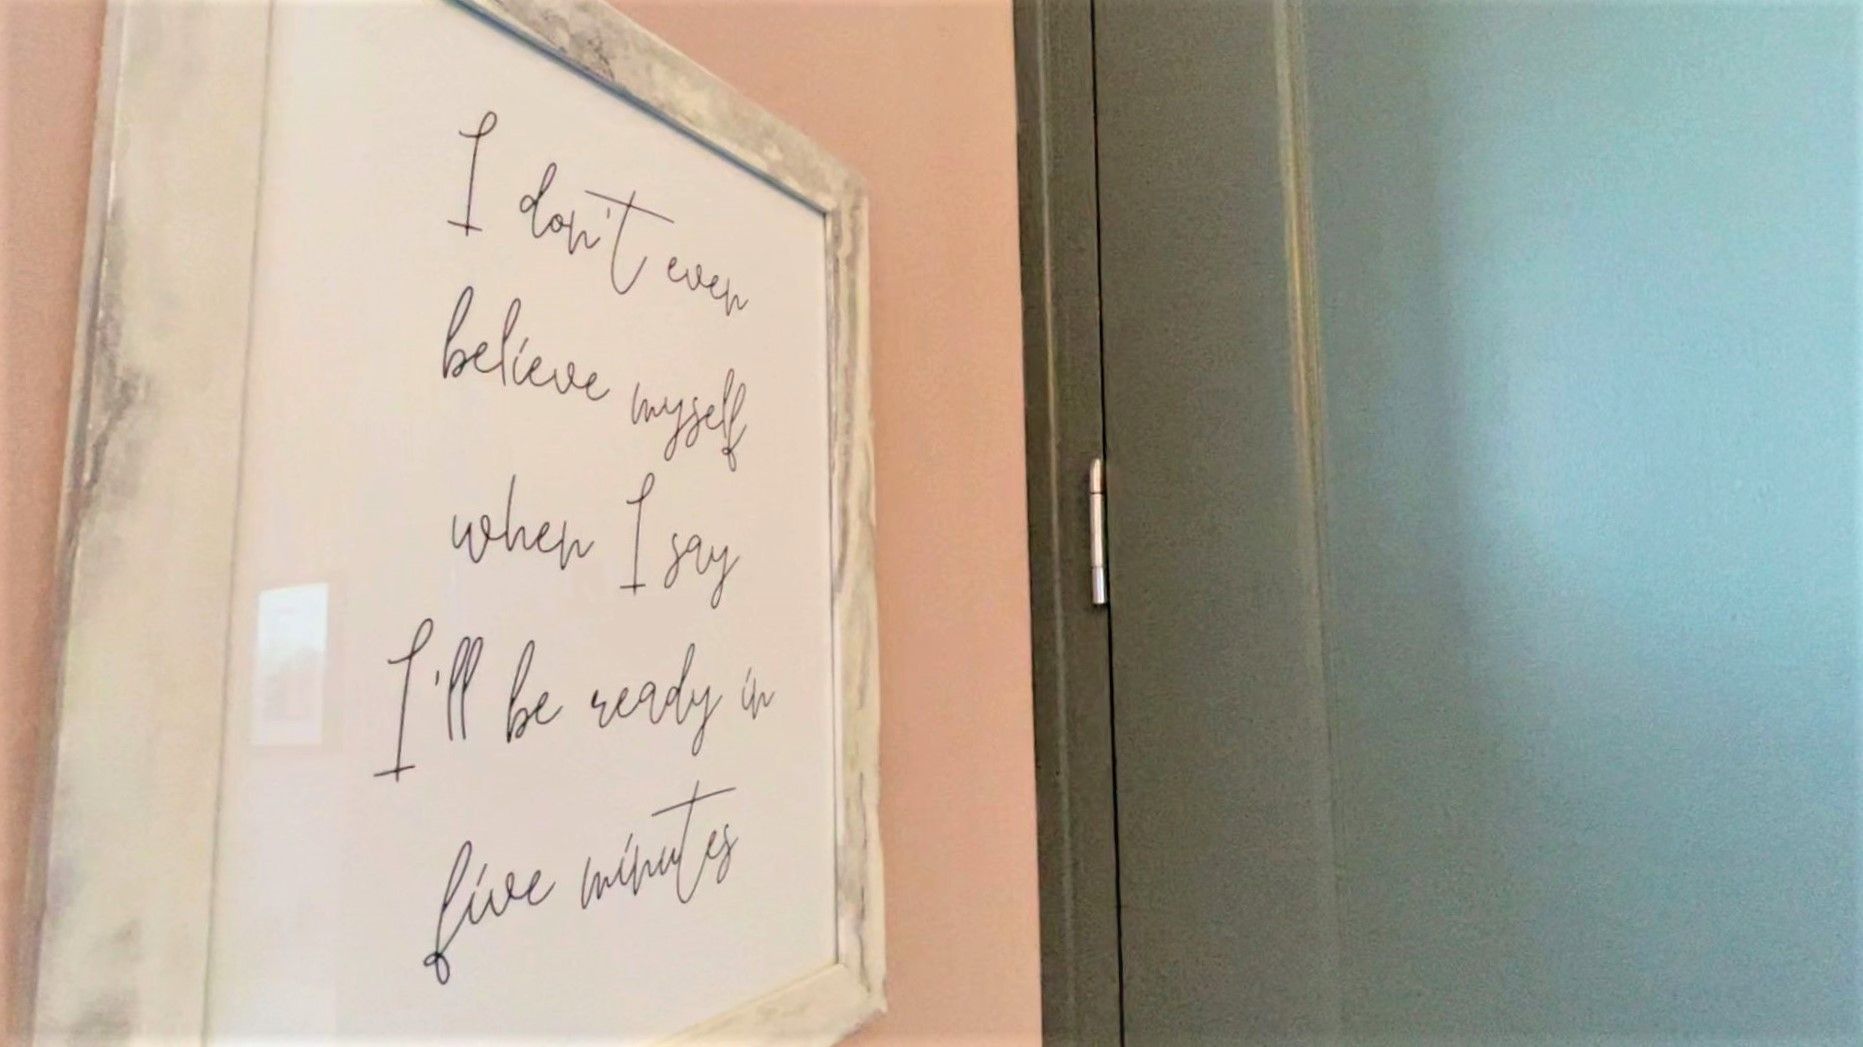 I don't even
believe myself
when I say
I'll be ready in
five minutes